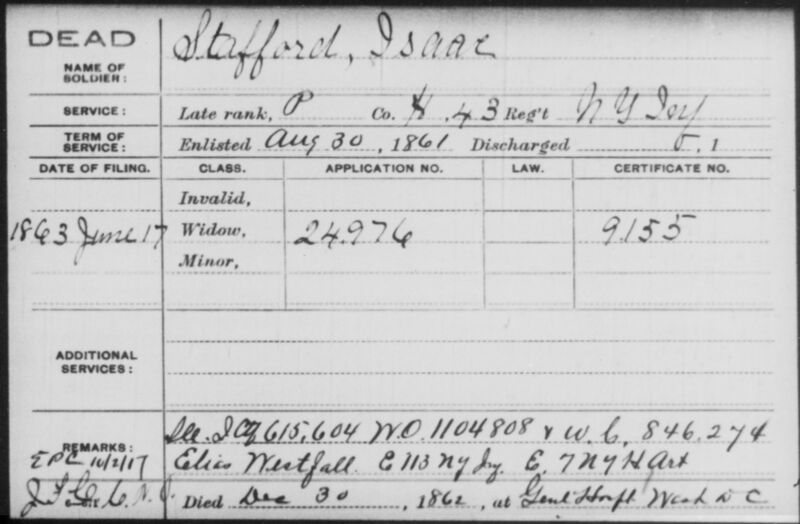 DEAD
NAME OF SOLDIER: Stafford, Isaac
SERVICE: Late rank, P Co. H, 43 Reg't N Y Inf
TERM OF SERVICE: Enlisted Aug 30, 1861 Discharged , 1
DATE OF FILING. CLASS. APPLICATION NO. LAW. CERTIFICATE NO.
Invalid,
1863 June 17 Widow, 24.976 9.155
Minor,
ADDITIONAL SERVICES:
615,604 W.O. 1104808 & W.C. 846.274
REMARKS: Elias Westfall E 113 NY Inf. E. 7 NY H Art
EPC 10/2/17
Died Dec 30, 1862, at Genl Hospt Wash D C